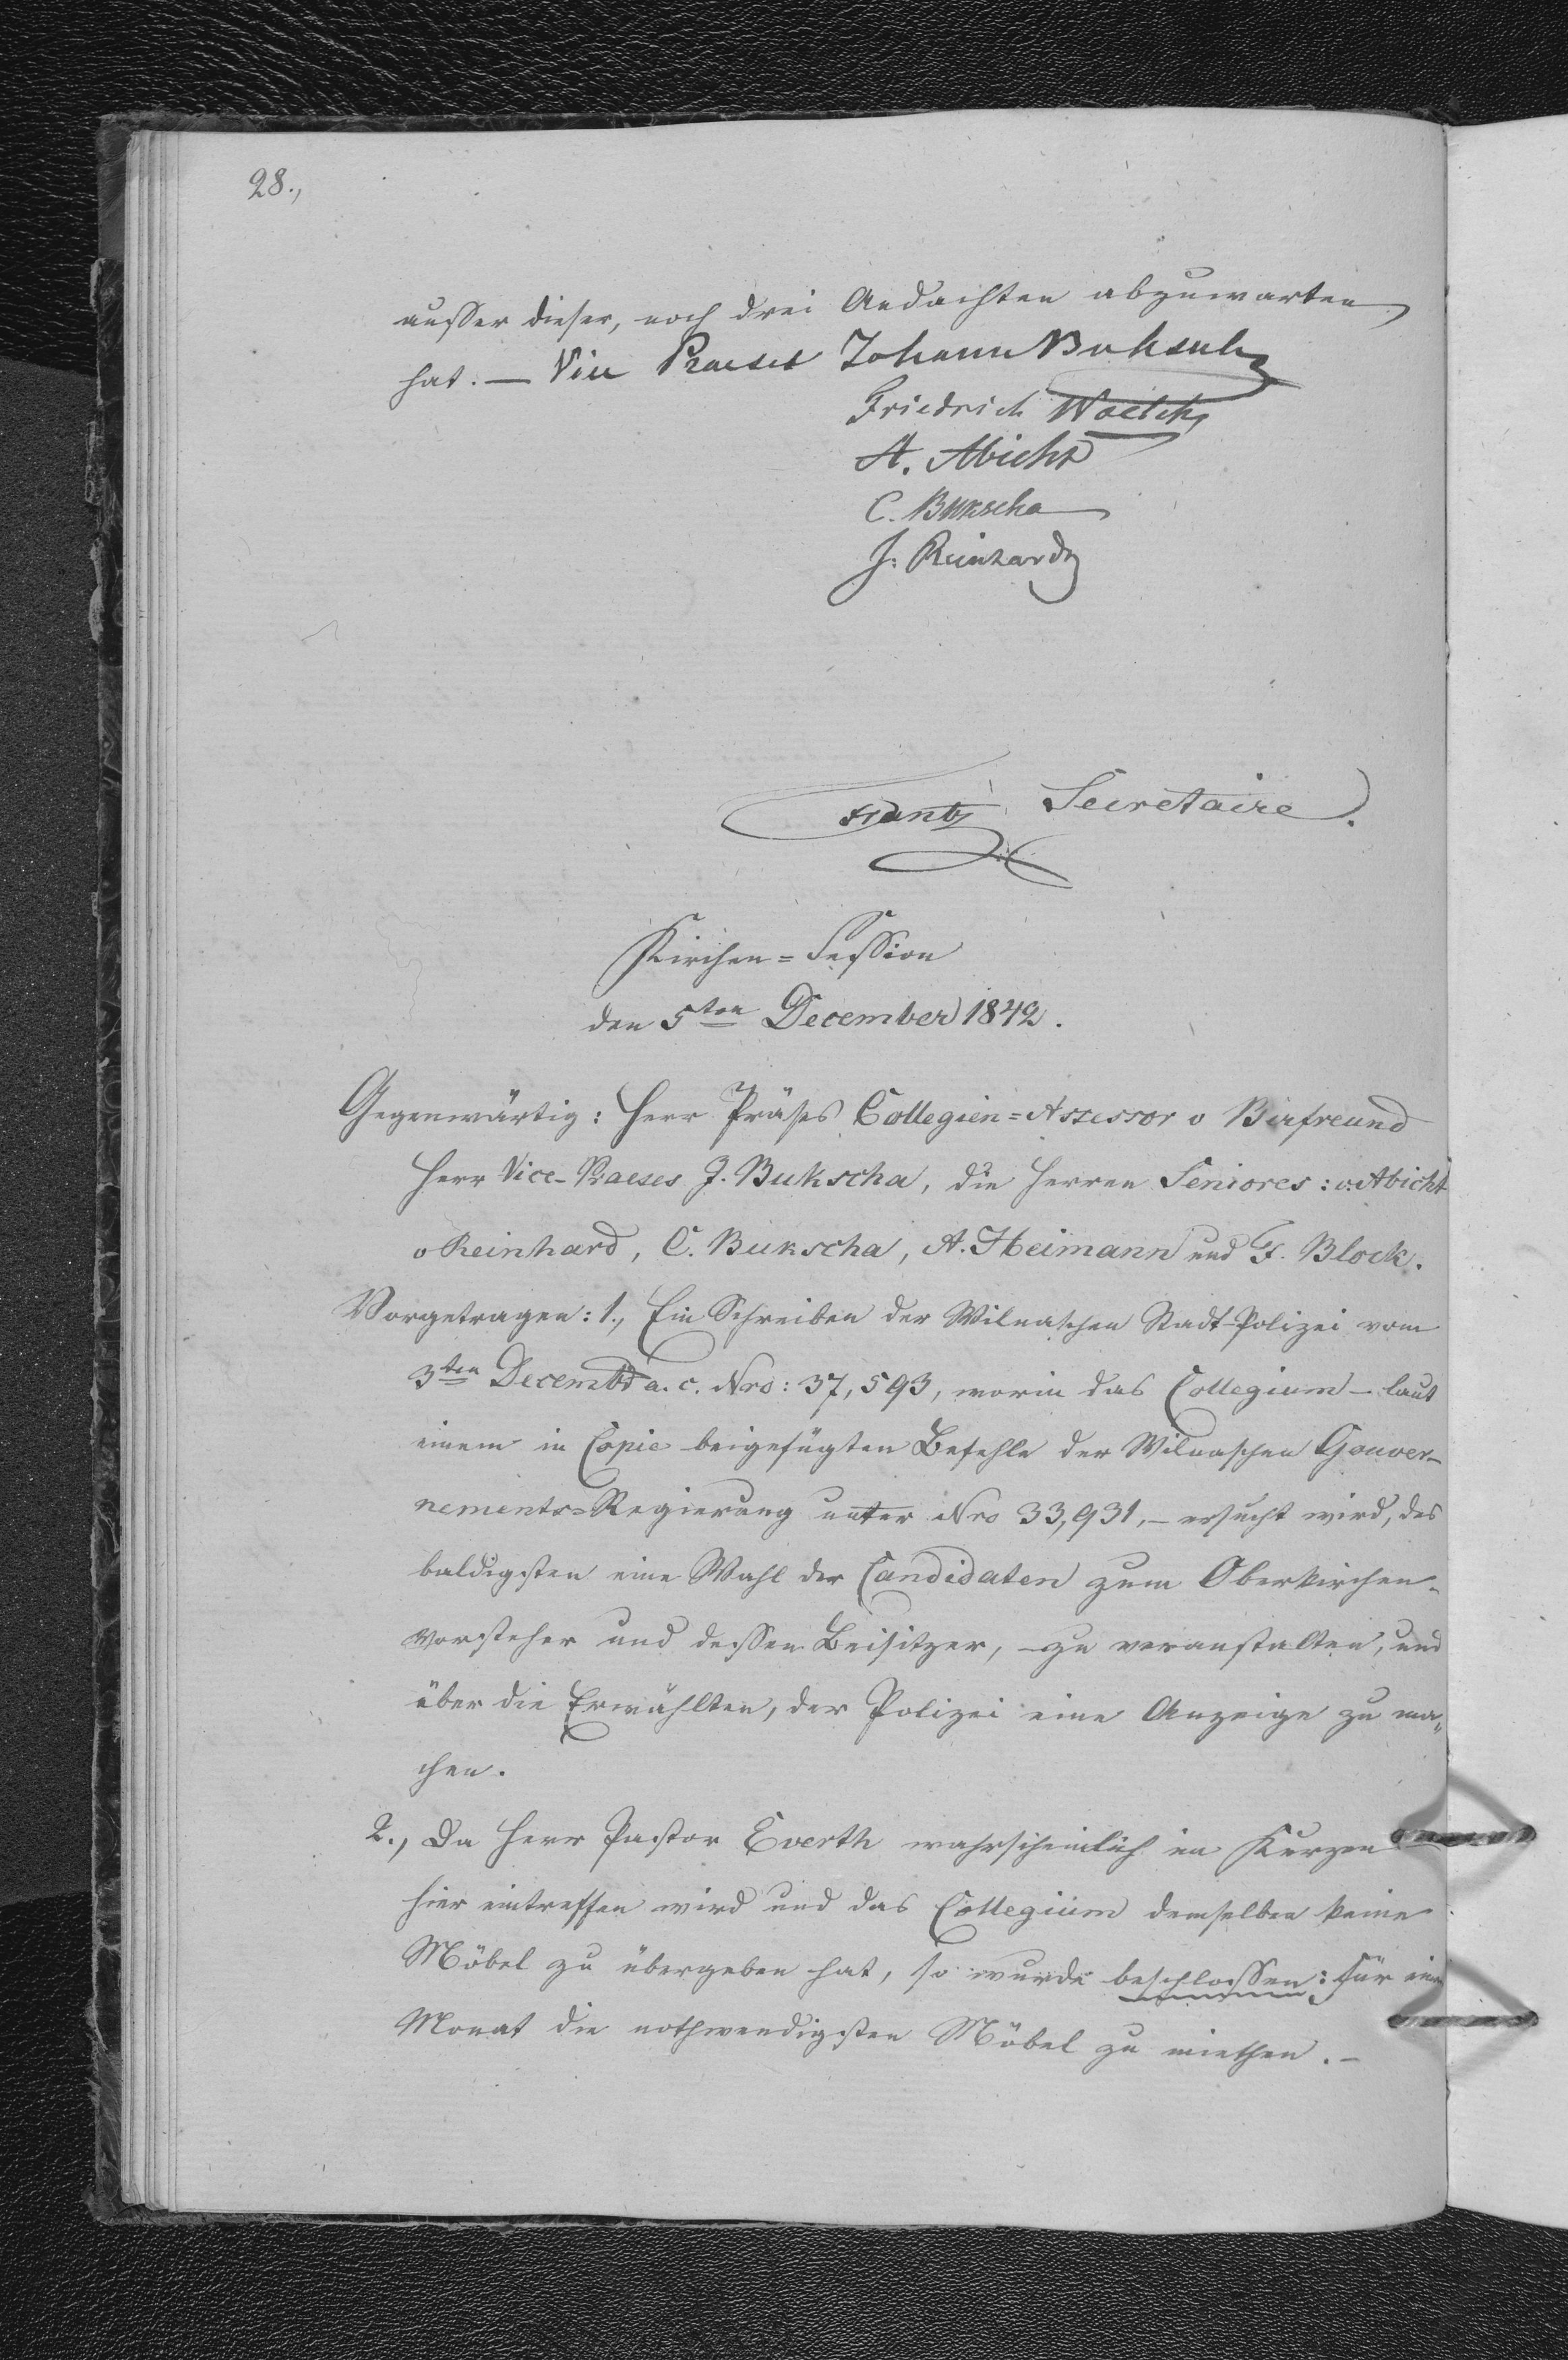 28.,
ausser dieser, noch drei Andachten abzuwarten
hat. — Vice Praeses Johann Buksch
Friedrich Woelck
A. Abicht
C. Bukscha
J: Reinhard
Frantz Secretaire.
Kirchen=Session
den 5ten December 1842.
Gegenwärtig: Herr Präses Collegien=Assessor v Bierfreund
Herr Vice-Praeses J. Bukscha, die Herren Seniores: v. Abicht
v Reinhard, C. Bukscha, A. Heimann und F. Block.
Vorgetragen: 1., Ein Schreiben der Wilnaschen Stadt-Polizei vom
3ten Decembr a. c. Nro: 37,593, worin das Collegium — laut
einem in Copie beigefügten Befehle der Wilnaschen Gouver-
nements=Regierung unter Nro 33,931, — ersucht wird, des
baldigsten eine Wahl der Candidaten zum Oberkirchen-
vorsteher und dessen Beisitzer, — zu veranstalten, und
über die Erwählten, der Polizei eine Anzeige zu ma„
chen.
2., Da Herr Pastor Everth wahrscheinlich in Kurzen
hier eintreffen wird und das Collegium demselben keine
Möbel zu übergeben hat, so wurde beschlossen: für ein
Monat die nothwendigsten Möbel zu miethen. —